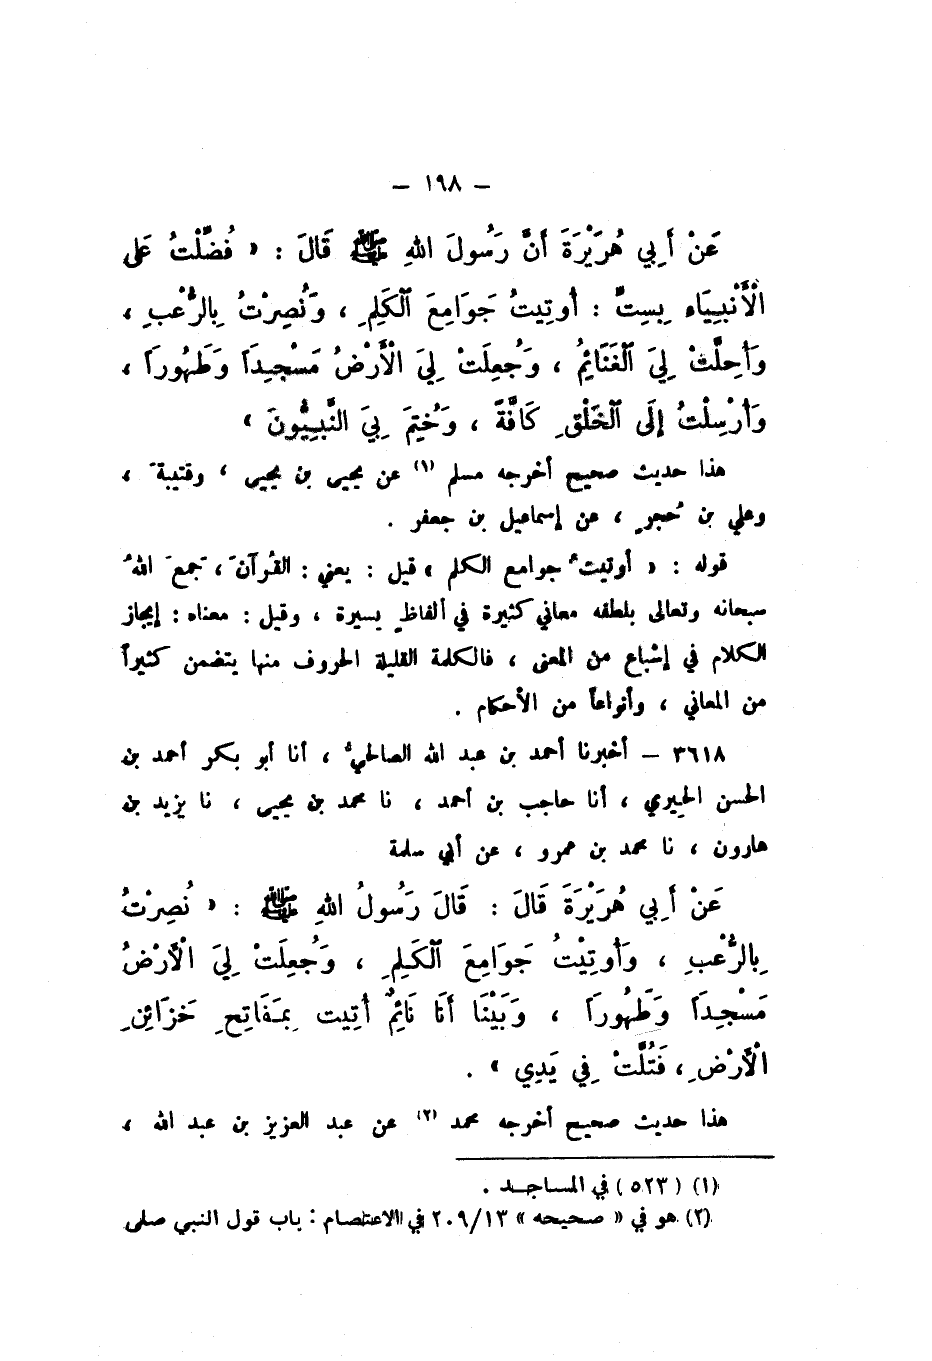 — ١٩٨ —
عَنْ أَبِي هُرَيْرَةَ أَنَّ رَسُولَ اللهِ ﷺ قَالَ : « فُضِّلْتُ عَلَى
الْأَنْبِيَاءِ بِسِتٍّ : أُوتِيتُ جَوَامِعَ ٱلْكَلِمِ ، وَنُصِرْتُ بِالرُّعْبِ ،
وَأُحِلَّتْ لِيَ ٱلْغَنَائِمُ ، وَجُعِلَتْ لِيَ الْأَرْضُ مَسْجِدَاً وَطَهُورَاً ،
وَأُرْسِلْتُ إِلَى ٱلْخَلْقِ كَافَّةً ، وَخُتِمَ بِيَ النَّبِيُّونَ »
هذا حديث صحيح أخرجه مسلم (١) عن يحيى بن يحيى ، وقتيبة ،
وعلي بن حُجرٍ ، عن إسماعيل بن جعفر .
قوله : « أوتيتُ جوامع الكلم » قيل : يعني : القُرآنَ ، جَمعَ اللهُ
سبحانه وتعالى بلطفه معاني كثيرة في ألفاظٍ يسيرة ، وقيل : معناه : إيجاز
الكلام في إشباع من المعنى ، فالكلمة القليلة الحروف منها يتضمن كثيراً
من المعاني ، وأنواعاً من الأحكام .
٣٦١٨ — أخبرنا أحمد بن عبد الله الصالحيُّ ، أنا أبو بكر أحمد بن
الحسن الحِيري ، أنا حاجب بن أحمد ، نا محمد بن يحيى ، نا يزيد بن
هارون ، نا محمد بن عمرو ، عن أبي سلمة
عَنْ أَبِي هُرَيْرَةَ قَالَ : قَالَ رَسُولُ اللهِ ﷺ : « نُصِرْتُ
بِالرُّعْبِ ، وَأُوتِيْتُ جَوَامِعَ ٱلْكَلِمِ ، وَجُعِلَتْ لِيَ الْأَرْضُ
مَسْجِدَاً وَطَهُورَاً ، وَبَيْنَا أَنَا نَائِمٌ أُتِيتُ بِمَفَاتِحِ خَزَائِنِ
الْأَرْضِ ، فَتُلَّتْ فِي يَدِي » .
هذا حديث صحيح أخرجه محمد (٢) عن عبد العزيز بن عبد الله ،
(١) (٥٢٣) في المساجد .
(٢) هو في « صحيحه » ٢٠٩/١٣ في الاعتصام : باب قول النبي صلى